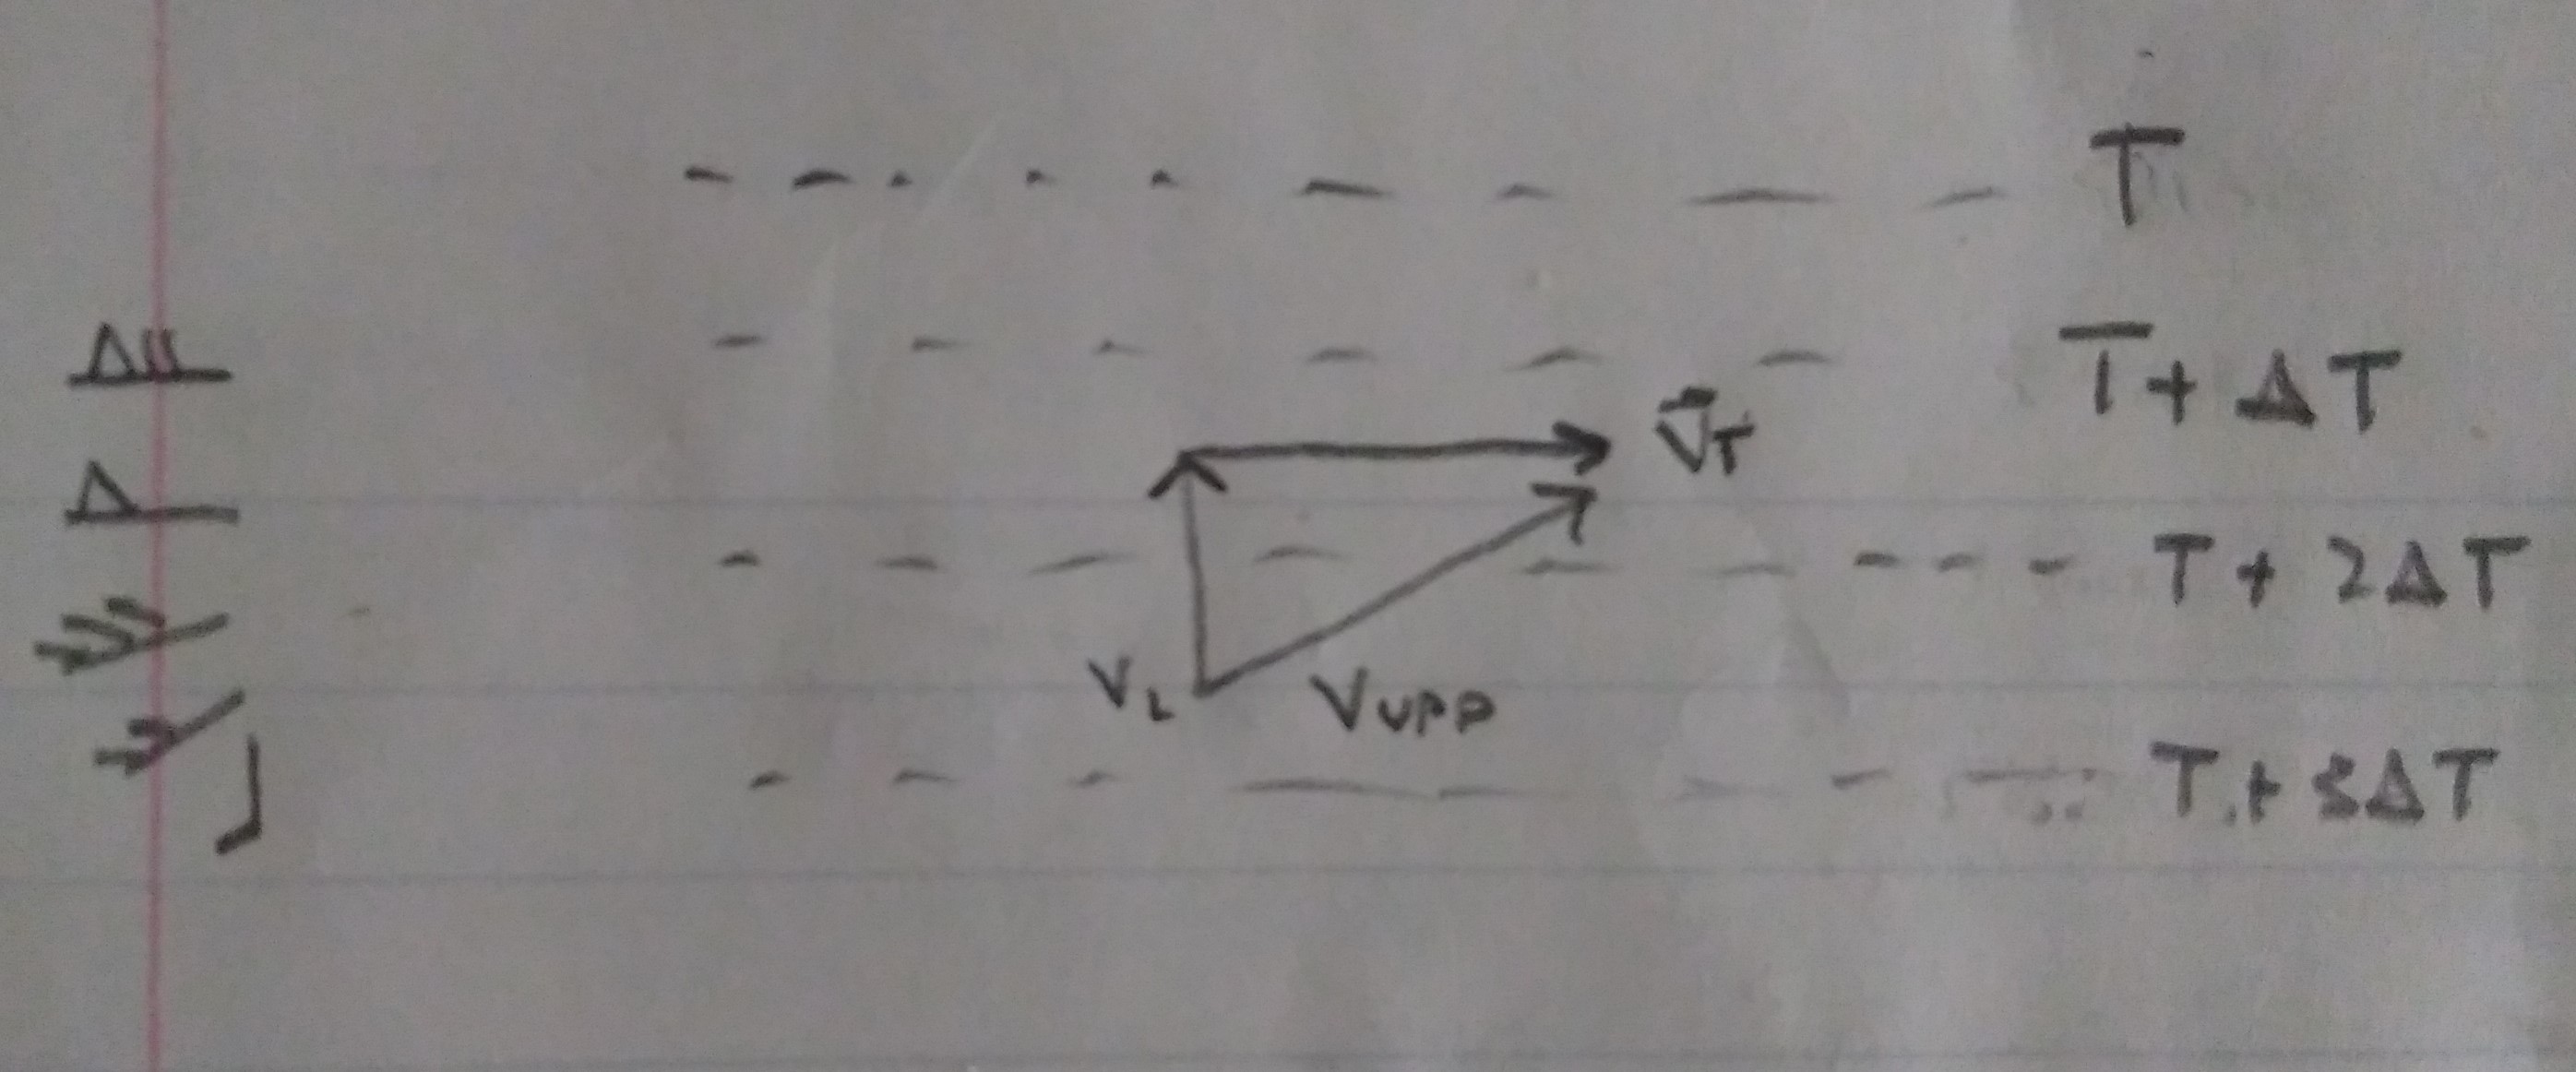 T
T + ΔT
V̄T
T + 2ΔT
VL VUPP
T + 3ΔT